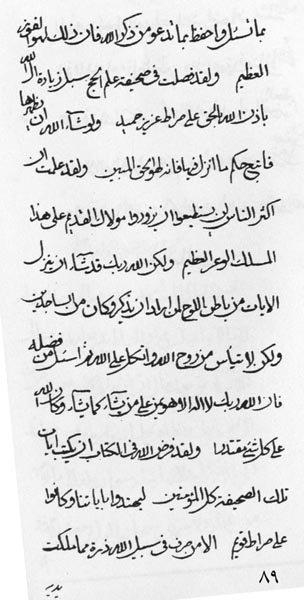 بما تسئل واحفظ بما تدعو من ذكر الله فان ذلك لهو الفوز
العظيم ولقد فصلت في صحيفة علم الحج سبل زيارة الله
باذن الله الحق على صراط عزيز حميد ولو شاء الله ان يظهرها
فاتبع حكم ما انزل فيها فانه لهو الحق المبين ولقد علمت ان
اكثر الناس لن يستطيعوا ان يزوروا مولاك القديم على هذا
المسلك الوعر العظيم ولكن الله ربك قد شاء ان ينزل
الايات من باطن اللوح لمن اراد ان يذكر وكان من الساجدين
ولكن لا تيأس من روح الله واتكل على الله ثم اسئل من فضله
فان الله ربك لا اله الا هو يمن على من يشاء كما يشاء وكان الله
على كل شيء مقتدرا ولقد فرض الله في الكتاب ان يكتب ايات
تلك الصحيفة كل المؤمنين ليهتدوا باياتنا وكانوا
على صراط قويم الا من حرف في سبيل الله ذرة مما ملكت
يديه
٨٩